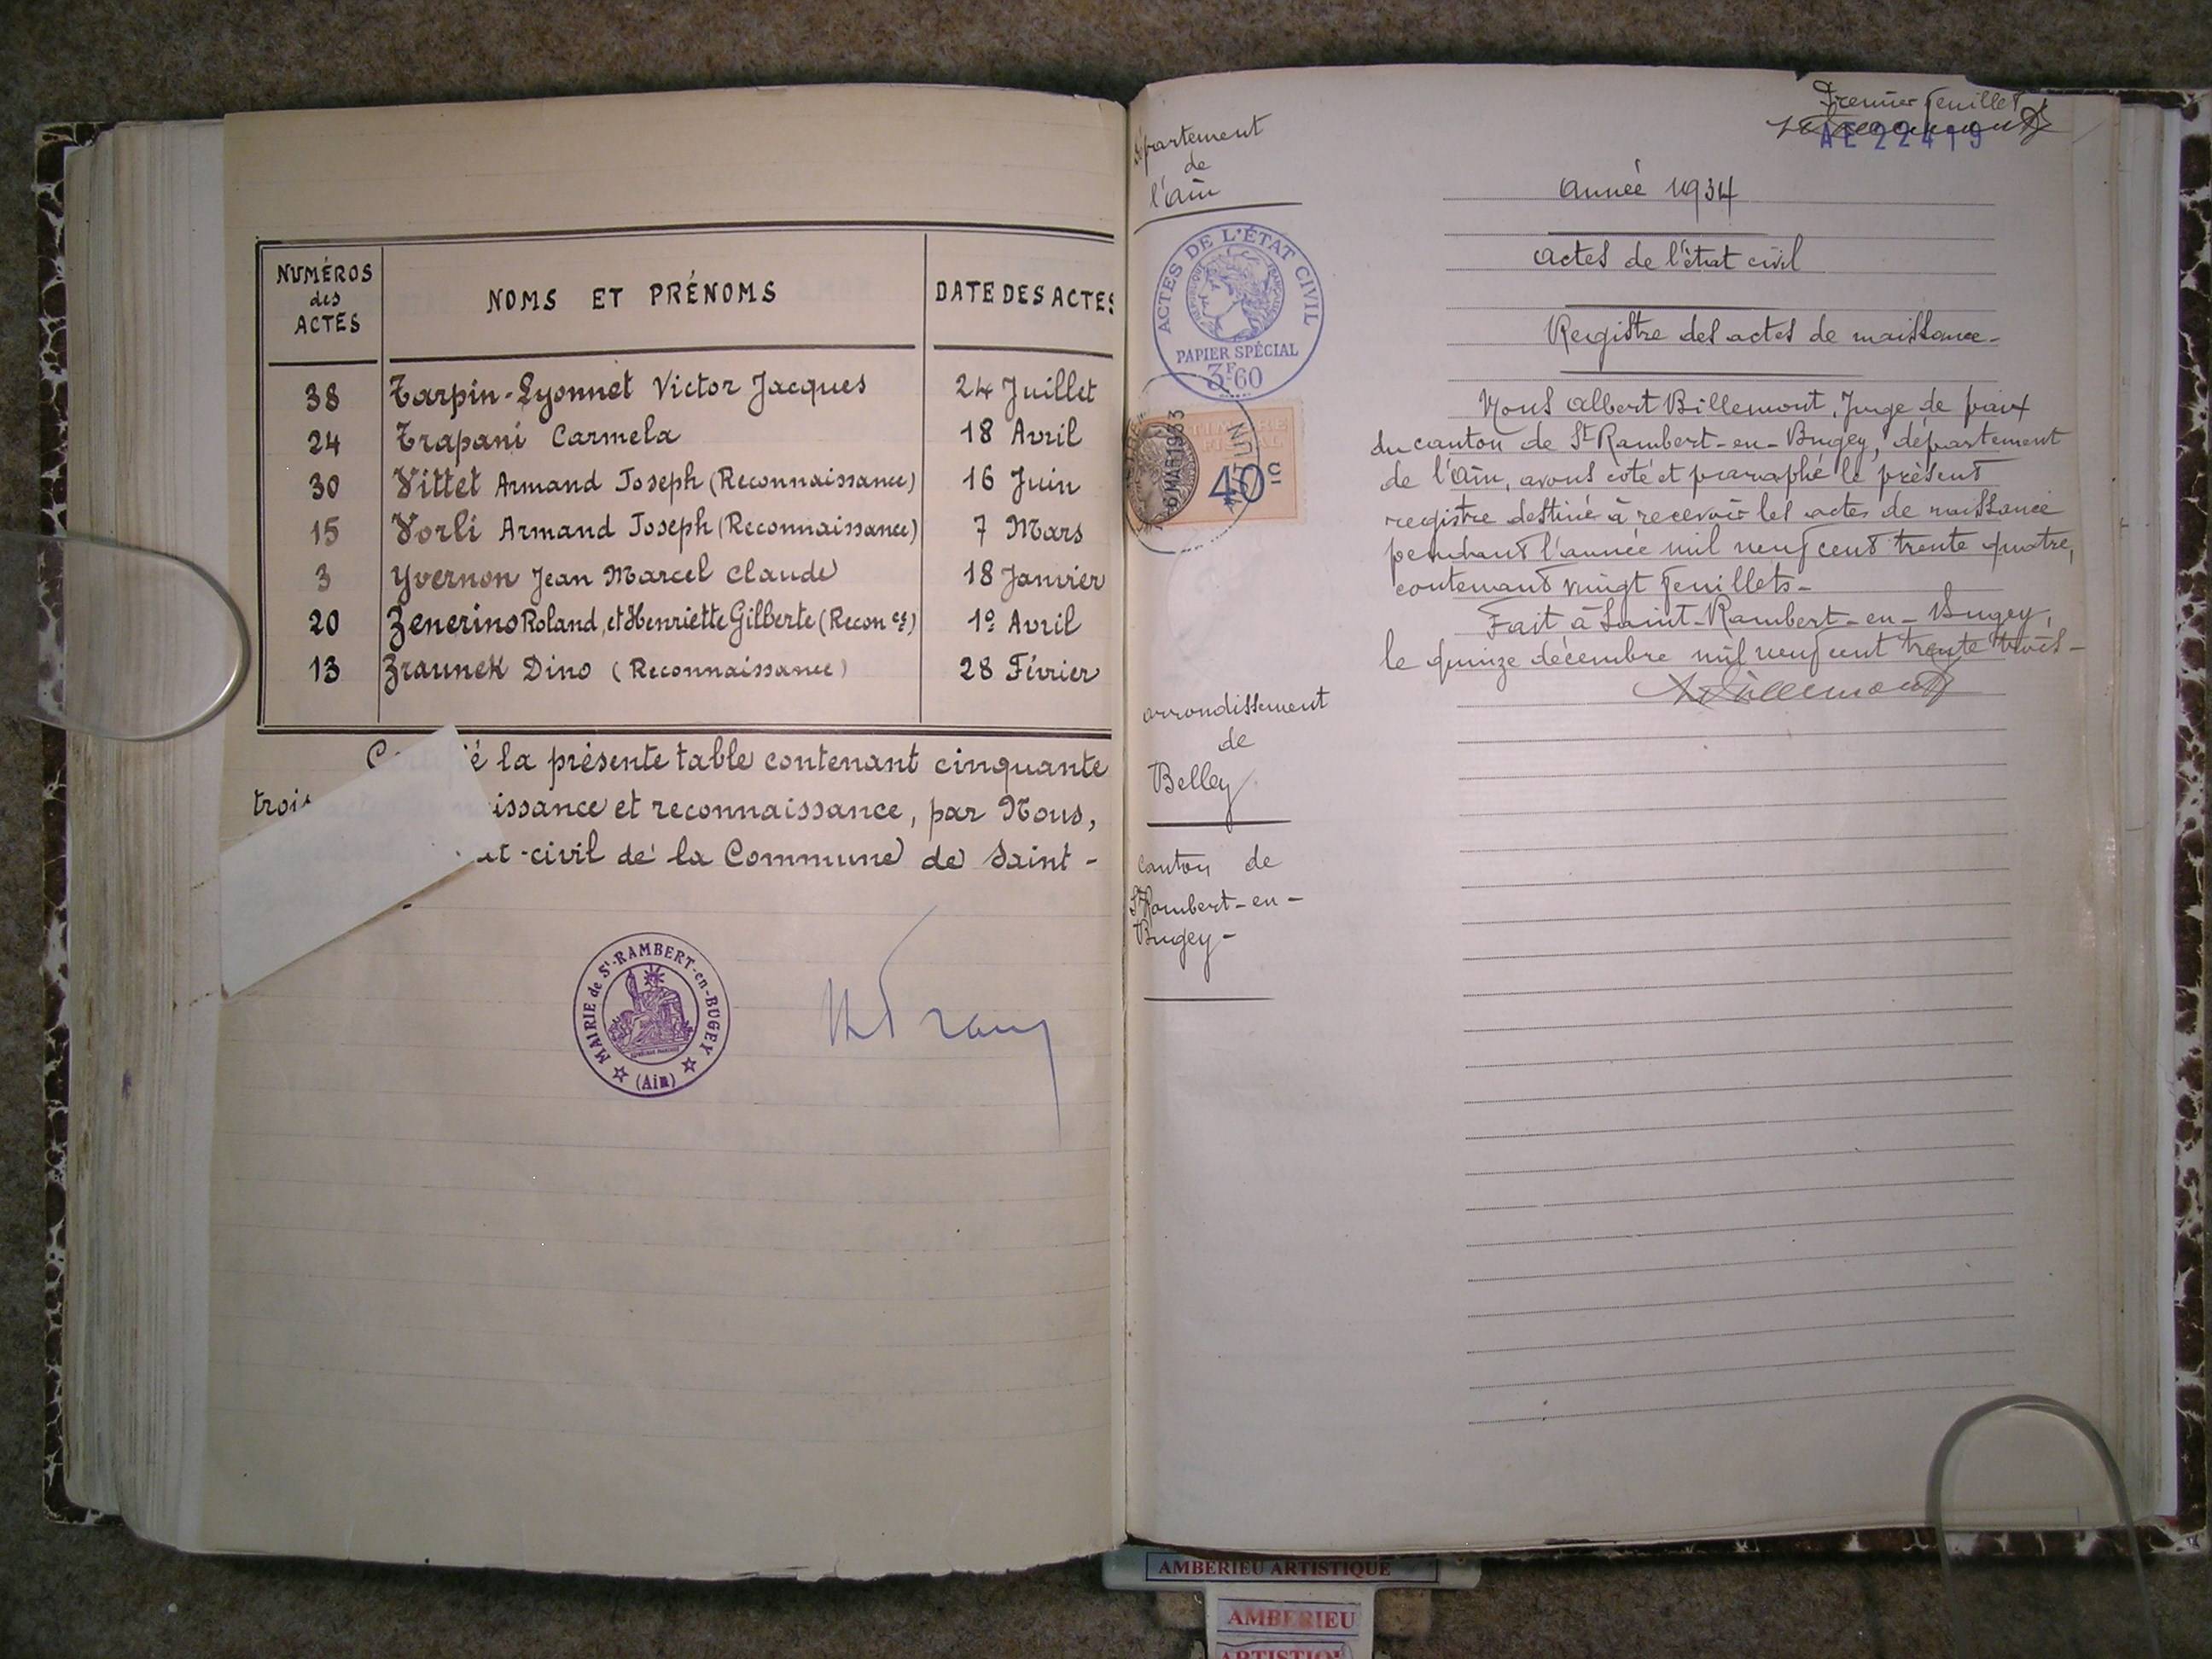 NUMÉROS des ACTES
NOMS ET PRÉNOMS
DATE DES ACTES
38 Tarpin-Lyonnet Victor Jacques 24 Juillet
24 Trapani Carmela 18 Avril
30 Vittet Armand Joseph (Reconnaissance) 16 Juin
15 Vorli Armand Joseph (Reconnaissance) 7 Mars
3 Yvernon Jean Marcel Claude 18 Janvier
20 Zenerino Roland, et Henriette Gilberte (Recon ces) 1º Avril
13 Zraunek Dino (Reconnaissance) 28 Février
é la présente table contenant cinquante
trois issance et reconnaissance, par Nous,
at-civil de la Commune de Saint-
MAIRIE de St-RAMBERT-en-BUGEY
(Ain)
Département
de
l'Ain
ACTES DE L'ÉTAT CIVIL
RÉPUBLIQUE FRANÇAISE
PAPIER SPÉCIAL
3F60
TIMBRE
FISCAL
40c
MAR 1933
arrondissement
de
Belley
Canton de
St Rambert-en-
Bugey-
Premier feuillet
AE 22419
Année 1934
Actes de l'état civil
Registre des actes de naissance-
Nous Albert Billemont, Juge de paix
du canton de St Rambert-en-Bugey, département
de l'Ain, avons coté et paraphé le présent
registre destiné à recevoir les actes de naissance
pendant l'année mil neuf cent trente quatre,
contenant vingt feuillets-
Fait à Saint-Rambert-en-Bugey,
le quinze décembre mil neuf cent trente trois-
ABillemont
AMBERIEU ARTISTIQUE
AMBERIEU
ARTISTIQU